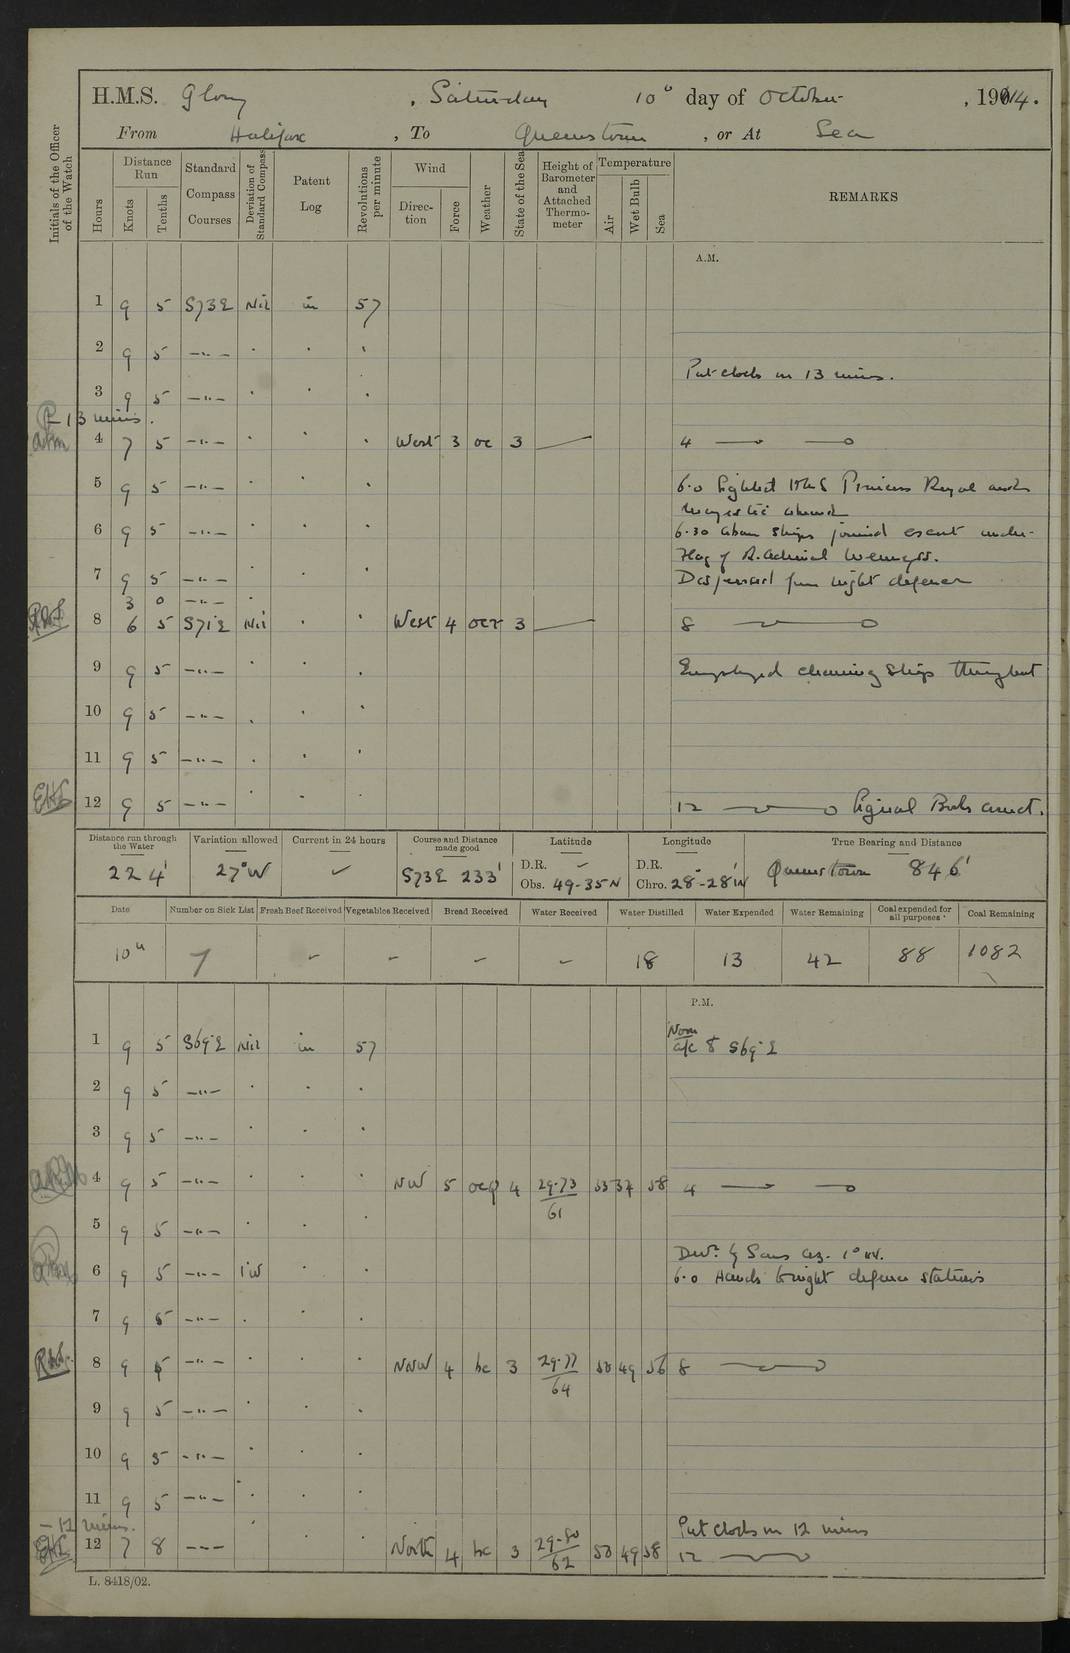 H.M.S. Glory, Saturday 10th day of October, 1914.
From Halifax, To Queenstown, or At Sea
Initials of the Officer of the Watch
Hours
Distance Run
Knots Tenths
Standard Compass Courses
Deviation of Standard Compass
Patent Log
Revolutions per minute
Wind
Direction Force
Weather
State of the Sea
Height of Barometer and Attached Thermometer
Temperature
Air Wet Bulb Sea
REMARKS
A.M.
1 9 5 S73E Nil in 57
2 9 5 —"— " " "
Put clocks on 13 mins.
3 9 5 —"— " " "
- 13 mins.
4 7 5 —"— " " " West 3 oc 3 4
5 9 5 —"— " " "
6.0 Sighted HMS Princess Royal and
Majestic ahead
6 9 5 —"— " " "
6.30 Above ships joined escort under
Flag of R. Admiral Wemyss.
7 9 5 —"— " " "
Dispersed from night defence
3 0 —"— "
8 6 5 S71°E Nil " " West 4 ocr 3 8
9 9 5 —"— " " Employed cleaning ship throughout
10 9 5 —"— " " "
11 9 5 —"— " " "
12 9 5 —"— " " " 12 Signal Books correct.
Distance run through the Water Variation allowed Current in 24 hours Course and Distance made good Latitude Longitude True Bearing and Distance
224' 27°W ✓ S73E 233' D.R. ✓ Obs. 49-35N D.R. Chro. 28°-28'W Queenstown 846'
Date Number on Sick List Fresh Beef Received Vegetables Received Bread Received Water Received Water Distilled Water Expended Water Remaining Coal expended for all purposes Coal Remaining
10th 7 - - - - 18 13 42 88 1082
P.M.
Noon
1 9 5 S69°E Nil in 57 a/c to S69°E
2 9 5 —"— " " "
3 9 5 —"— " " "
4 9 5 —"— " " " NW 5 ocq 4 29.73/61 58 4
5 9 5 —"— " " "
Devn by Suns az. 1°W.
6 9 5 —"— 1°W " " 6.0 Hands to night defence stations
7 9 5 —"— " " "
8 9 5 —"— " " " NNW 4 bc 3 29.77/64 49 56 8
9 9 5 —"— " " "
10 9 5 —"— " " "
11 9 5 —"— " " "
- 12 mins. Put clocks on 12 mins
12 7 8 —"— " " North 4 bc 3 29.80/62 49 58 12
L. 8418/02.